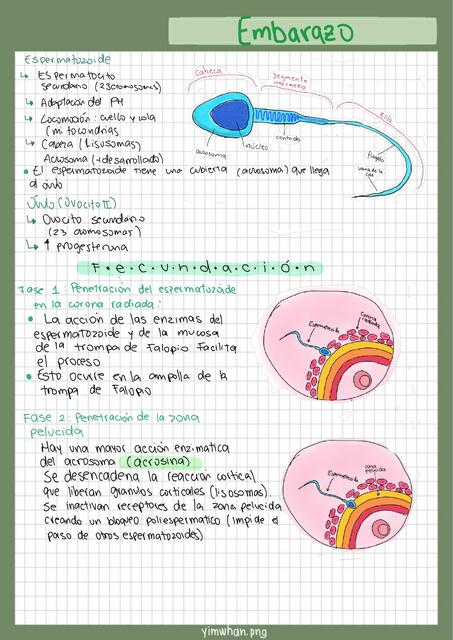 Embarazo
Espermatozoide
Espermatocito
secundario (23cromosomas)
Adaptación del PH
Locomoción: cuello y cola
(mitocondrias)
Cabeza (lisosomas)
Acrosoma (+desarrollado)
El espermatozoide tiene una cubierta (acrosoma) que llega
al óvulo
Cabeza
Segmento
intermedio
Cola
acrosoma
núcleo
centriolo
flagelo
vaina de la
cola
Óvulo (Ovocito II)
Ovocito secundario
(23 cromosomas)
↑ progesterona
F•e•c•u•n•d•a•c•i•ó•n
Fase 1: Penetración del espermatozoide
en la corona radiada:
La acción de las enzimas del
espermatozoide y de la mucosa
de la trompa de Falopio facilita
el proceso
Esto ocurre en la ampolla de la
trompa de Falopio
Espermatozoide
Corona
radiada
Fase 2: Penetración de la zona
pelucida
Hay una mayor acción enzimatica
del acrosoma (acrosina)
Se desencadena la reacción cortical
que liberan granulos corticales (lisosomas).
Se inactivan receptores de la zona pelucida
creando un bloqueo poliespermatico (impide el
paso de otros espermatozoides)
Espermatozoide
zona
pelucida
yimwhan.png